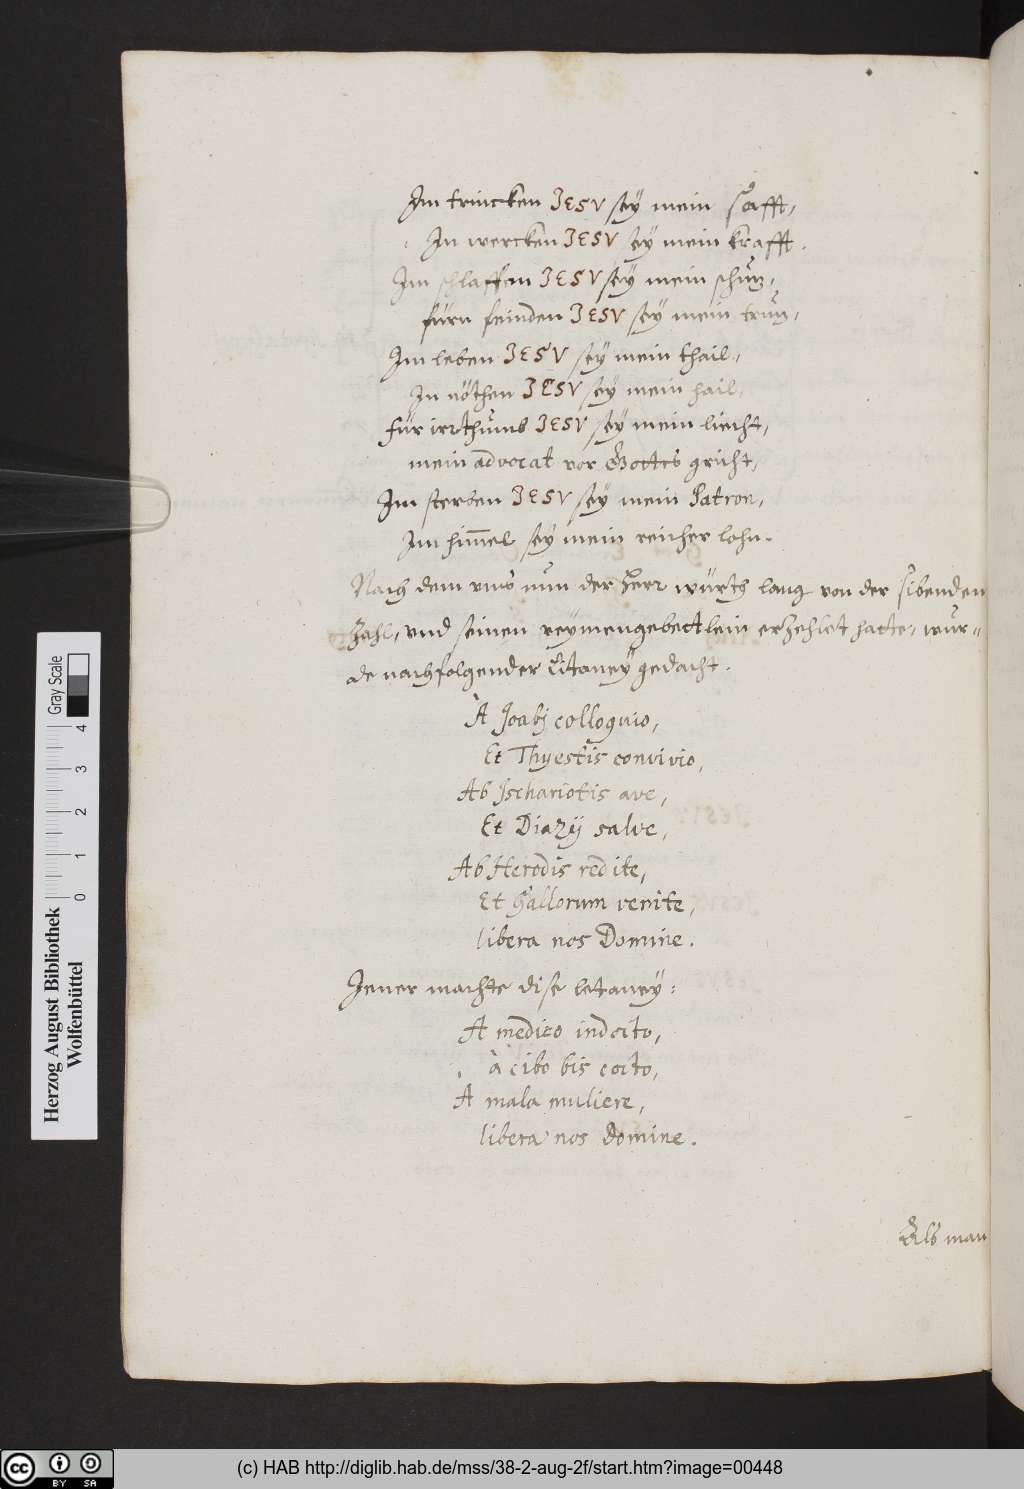 Im trincken JESV sey mein safft,
In wercken JESV sey mein krafft.
Im schlaffen JESV sey mein schutz,
fürn feinden JESV sey mein trutz,
Im leben JESV sey mein thail,
In nöthen JESV sey mein hail,
für irrthumb JESV sey mein liecht,
mein advocat vor Gottes gricht,
Im sterben JESV sey mein Patron,
Im him̄el sey mein reicher lohn.
Nach dem vns nun der Herr würth lang von der sibenden
Zahl, vnd seinen reymengebettlein erzehlet hatte, wur=
de nachfolgender Litaney gedacht.
À Joabj colloquio,
Et Thyestis convivio,
Ab Jschariotis ave,
Et Diazij salve,
Ab Herodis redite,
Et Gallorum venite,
libera nos Domine.
Jener machte dise letaney:
A medico indocto,
à cibo bis cocto,
A mala muliere,
libera nos domine.
Als man
Herzog August Bibliothek
Wolfenbüttel
Gray Scale
0 1 2 3 4
cc BY SA
(c) HAB http://diglib.hab.de/mss/38-2-aug-2f/start.htm?image=00448